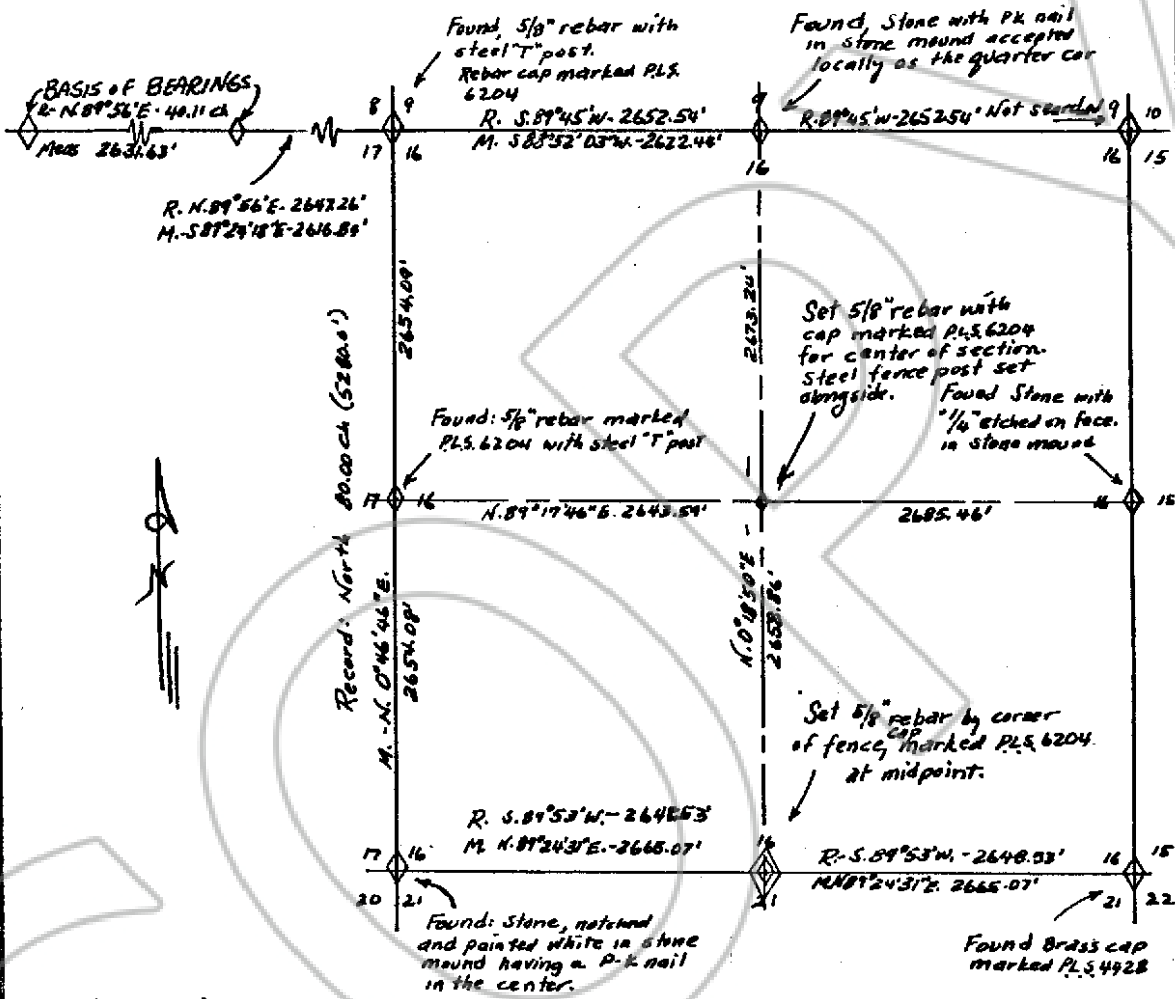 Found, 5/8" rebar with
steel "T" post.
Rebar cap marked P.L.S.
6204
Found, Stone with PK nail
in stone mound accepted
locally as the quarter cor
BASIS OF BEARINGS
R- N.89°56'E - 40.11 ch
Meas 2631.63'
8 9
17 16
R. S.89°45'W - 2652.54'
M. S88°52'03"W.-2622.44'
9
16
R.89°45'W-2652.54' Not searched
9 10
16 15
R. N.89°56'E. 2647.26'
M.-S89°24'18"E-2616.89'
2654.09'
2673.24'
Record: North 80.00 ch (5280.0')
Set 5/8" rebar with
cap marked P.L.S. 6204
for center of section.
Steel fence post set
alongside.
Found Stone with
"1/4" etched on face.
in stone mound
Found: 5/8" rebar marked
P.L.S. 6204 with steel "T" post
17 16
N.89°17'46"E. 2643.59'
2685.46'
16 15
N
M. - N. 0°46'46"E.
2654.08'
N. 0°18'50"E
2652.86'
Set 5/8" rebar by corner
cap
of fence, marked P.L.S. 6204
at midpoint.
R. S.89°53'W. - 2648.53'
M. N.89°24'31"E.-2665.07'
17 16
20 21
16
21
R.- S.89°53'W. - 2648.53'
M.N89°24'31"E. 2665.07'
16 15
21 22
Found: Stone, notched
and painted white in stone
mound having a P-K nail
in the center.
Found Brass cap
marked P.L.S. 4928